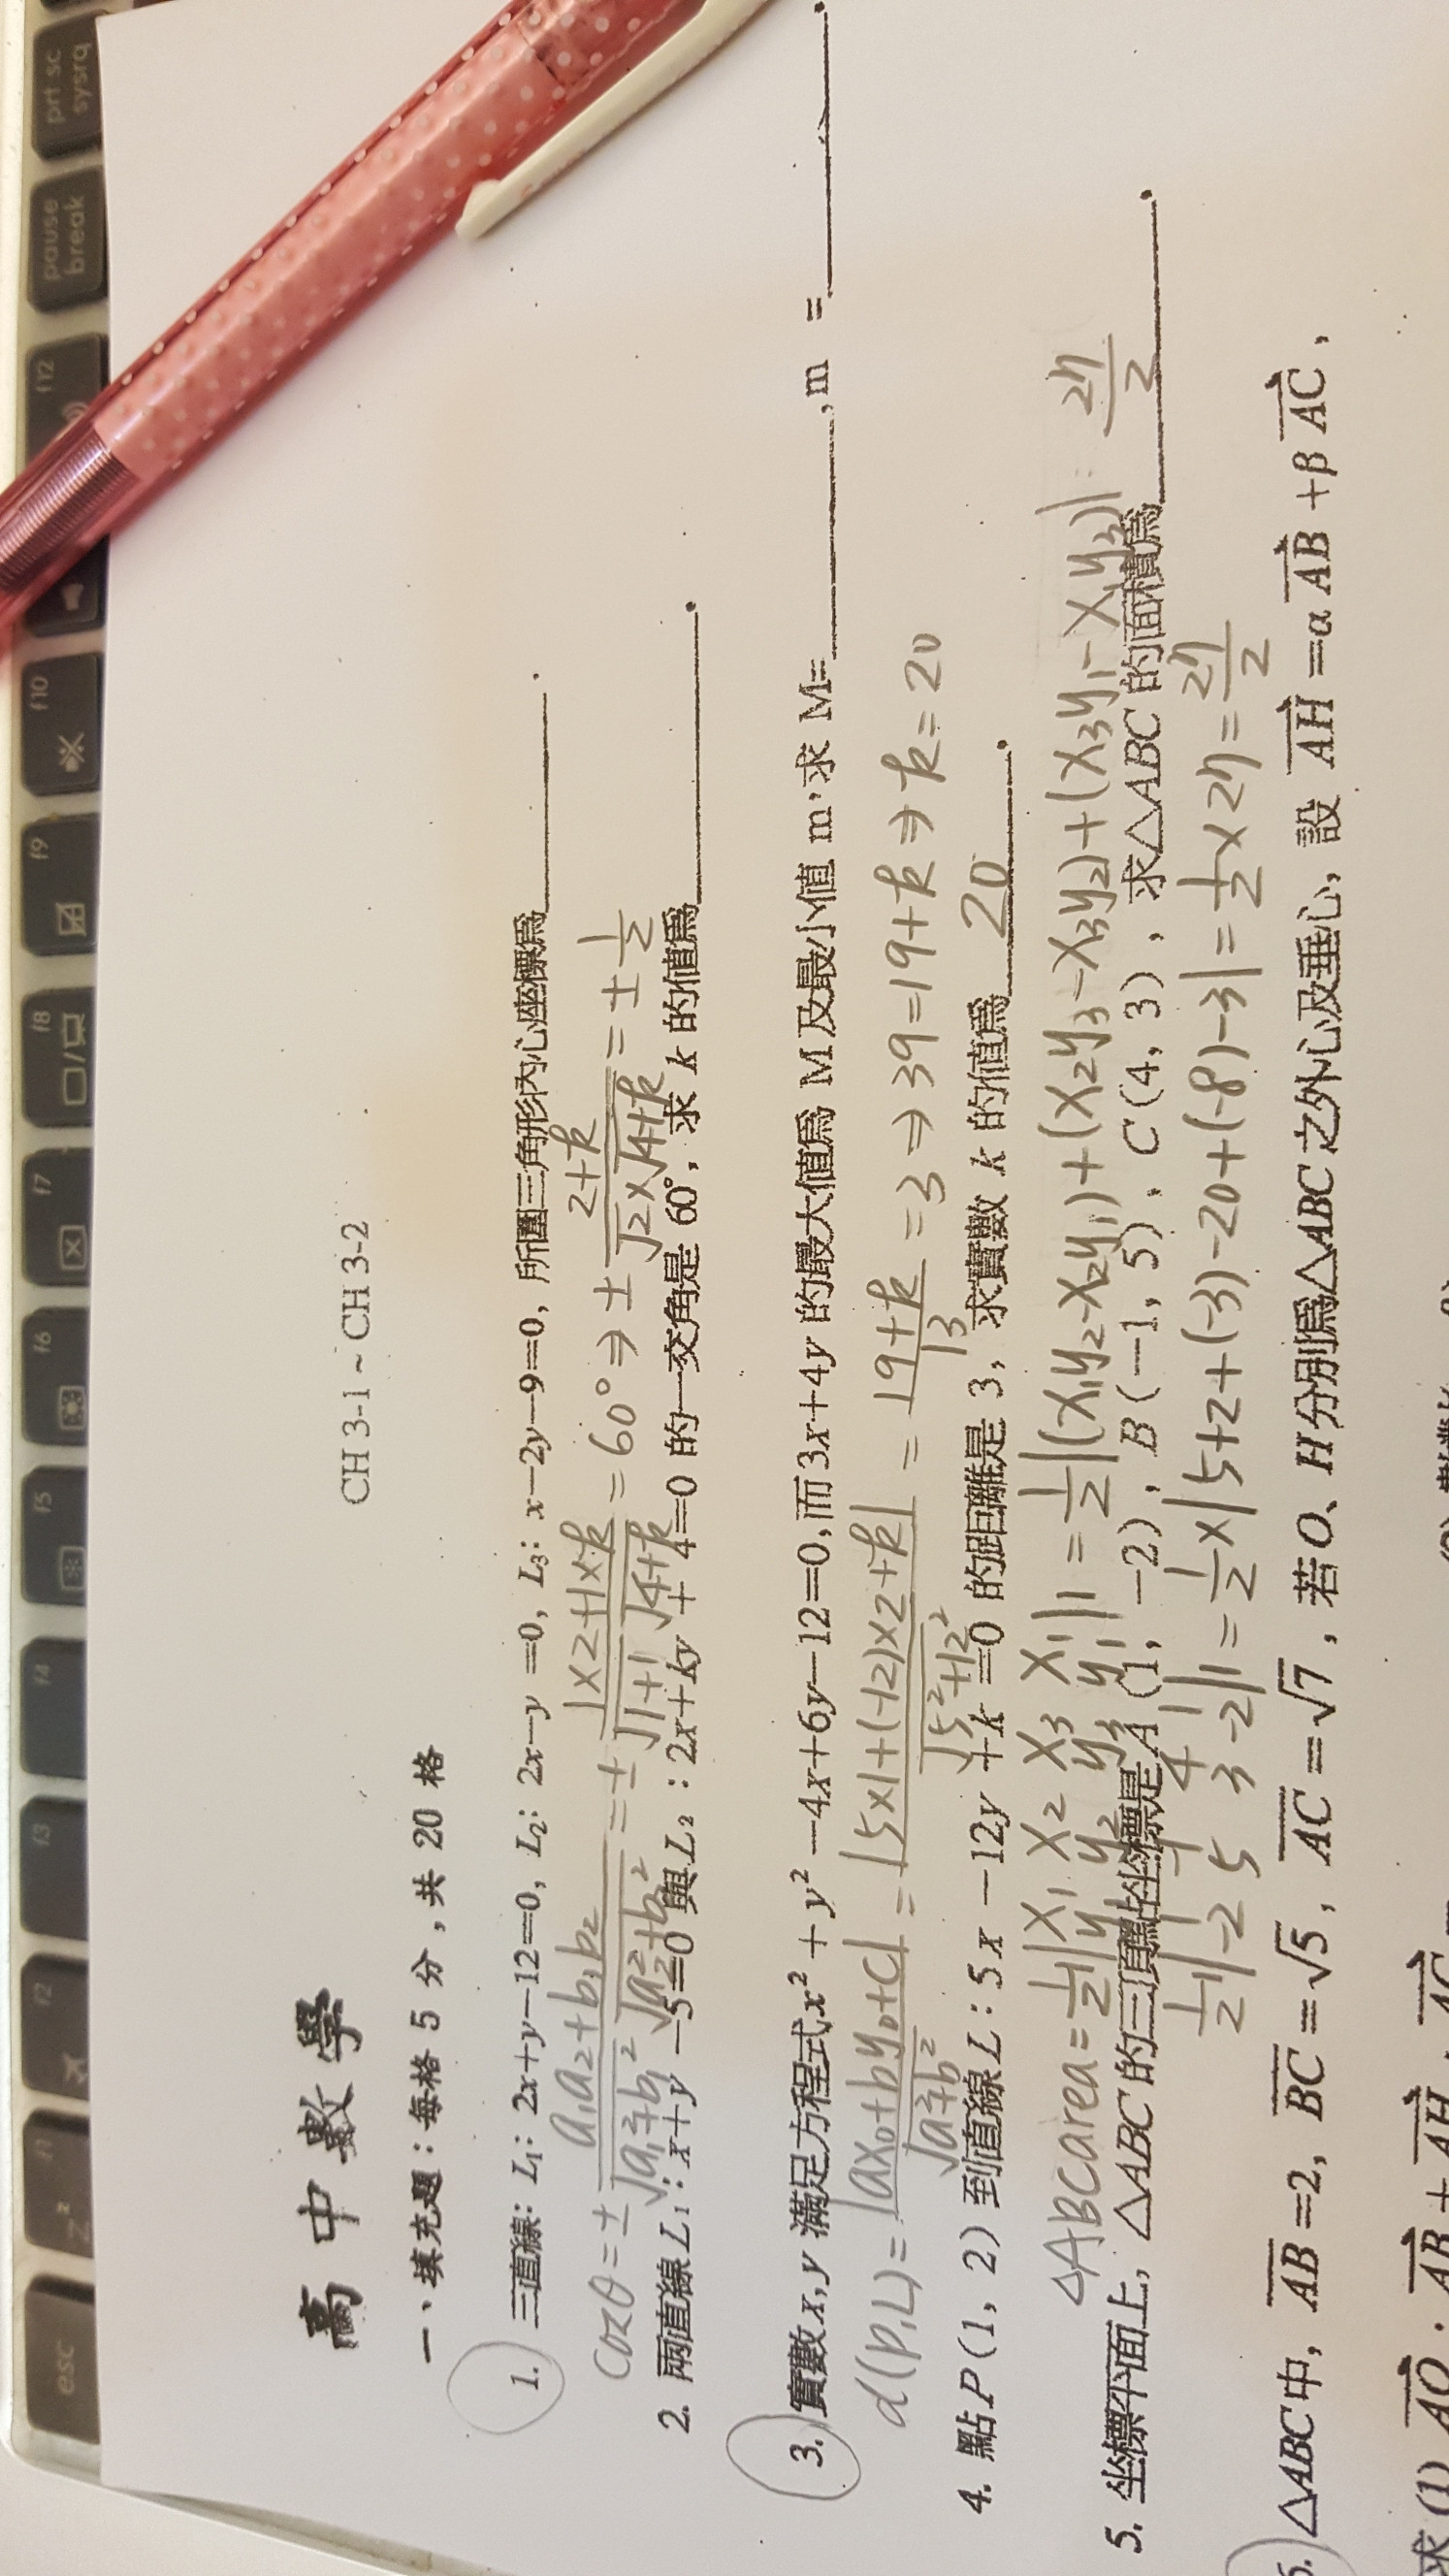 高中數學
CH 3-1 ~ CH 3-2
一、填充題：每格 5 分，共 20 格
1. 三直線: L₁: 2x+y−12=0, L₂: 2x−y =0, L₃: x−2y−9=0, 所圍三角形內心座標為________.
cosθ = ± a₁a₂+b₁b₂ / √a₁²+b₁² √a₂²+b₂² = ± 1×2+1×k / √1+1 √4+k = 60° ⇒ ± 2+k / √2×√4+k = ± 1/2
2. 兩直線 L₁ : x+y −5=0 與 L₂ : 2x+ky + 4=0 的一交角是 60°, 求 k 的值為________.
3. 實數 x, y 滿足方程式 x² + y² −4x+6y−12=0, 而 3x+4y 的最大值為 M 及最小值 m, 求 M=________, m =________.
d(P,L) = |ax₀+by₀+c| / √a²+b² = |5×1+(-12)×2+k| / √5²+12² = 19+k / 13 = 3 ⇒ 39=19+k ⇒ k=20
4. 點 P (1, 2) 到直線 L : 5x −12y +k =0 的距離是 3, 求實數 k 的值為 20 .
△ABC area = 1/2 | x₁ x₂ x₃ x₁ y₁ y₂ y₃ y₁ | = 1/2 |(x₁y₂-x₂y₁)+(x₂y₃-x₃y₂)+(x₃y₁-x₁y₃)| : 27/2
5. 坐標平面上, △ABC 的三頂點坐標是 A (1, −2), B (−1, 5)、C (4, 3), 求△ABC 的面積為________.
1/2 | 1 -1 4 1 -2 5 3 -2 | = 1/2 × |5+2+(-3)-20+(-8)-3| = 1/2 × 27 = 27/2
△ABC中, AB =2, BC =√5, AC =√7, 若 O、H 分別為△ABC 之外心及垂心, 設 AH =α AB +β AC,
求 (1) AO · AB + AH · AC
esc
f1
zᶻ
f2
f3
f4
f5
f6
f7
f8
f9
f10
f12
pause
break
prt sc
sysrq